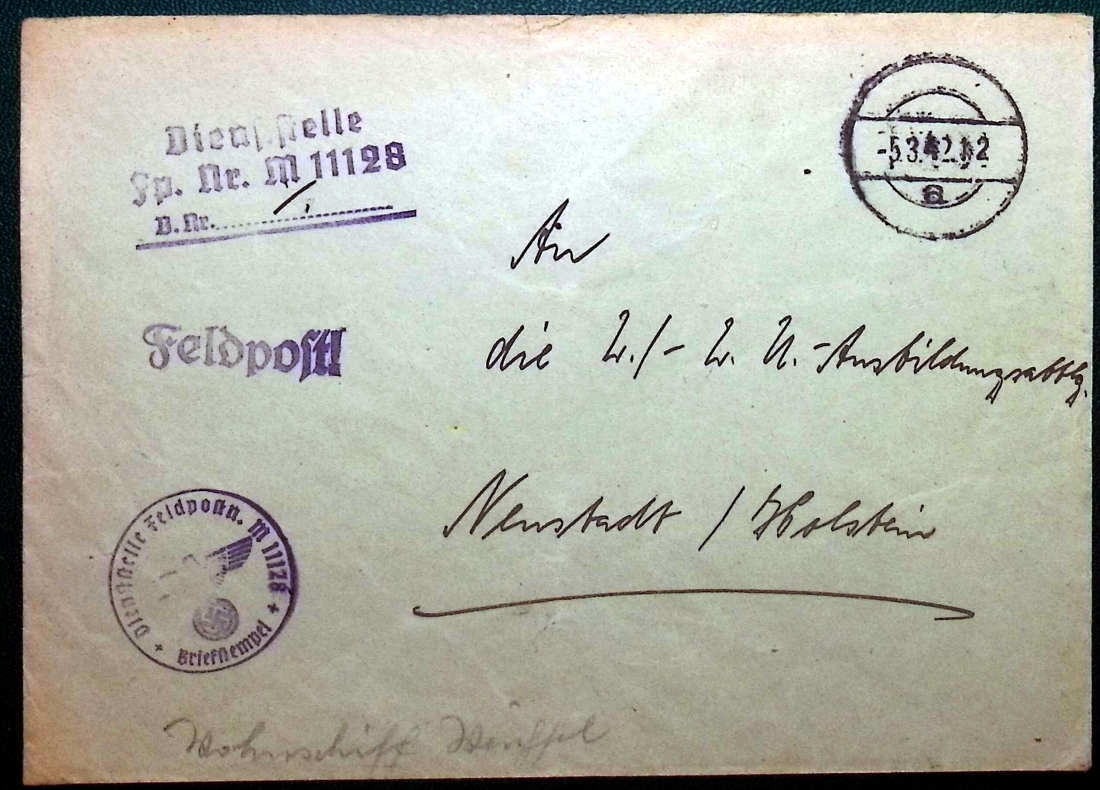 Dienststelle
Fp. Nr. M 11128
B. Nr.
-5.3.42.12
a
An
die U./- L. U.-Ausbildungsabtlg.
Feldpost!
Neustadt / Holstein
Dienststelle Feldpostn. M 11128
Briefstempel
Wohnschiff